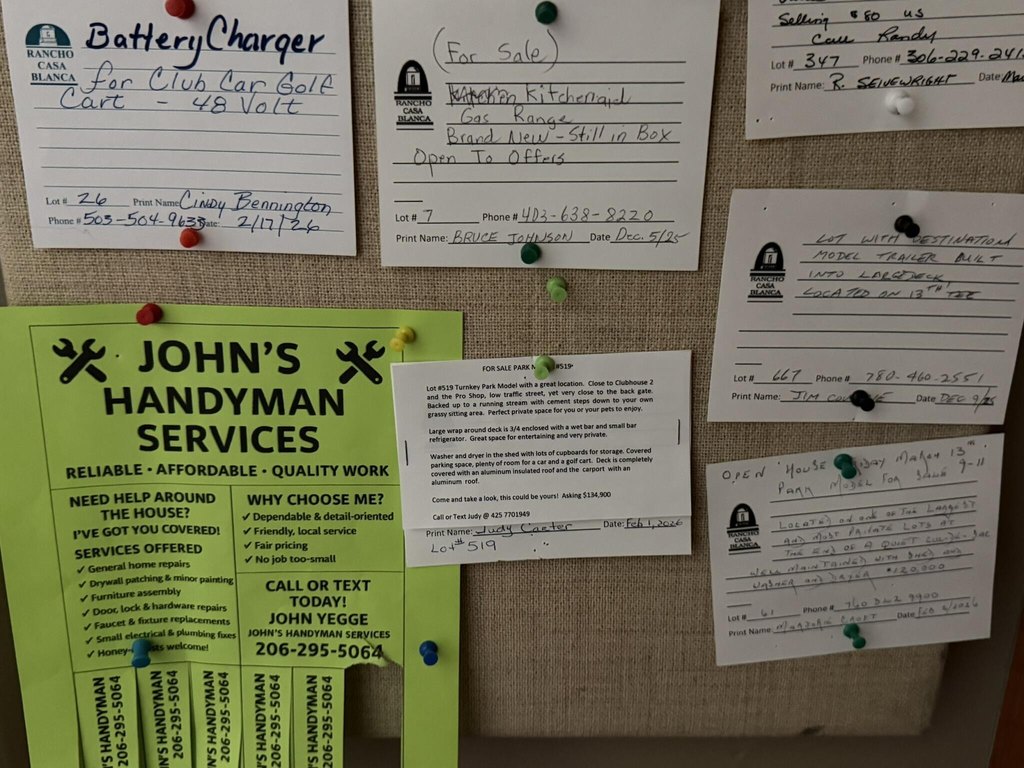 RANCHO
CASA
BLANCA
Battery Charger
for Club Car Golf
Cart - 48 Volt
Lot # 26 Print Name Cindy Bennington
Phone # 503-504-9633 Date: 2/17/26
(For Sale)
RANCHO
CASA
BLANCA
Kitchenaid
Gas Range
Brand New - Still in Box
Open To Offers
Lot # 7 Phone # 403-638-8220
Print Name: BRUCE JOHNSON Date Dec. 5/25
Selling $80 US
Call Randy
Lot # 347 Phone # 306-229-241
Print Name: R. SEIVEWRIGHT Date
RANCHO
CASA
BLANCA
LOT WITH DESTINATION
MODEL TRAILER BUILT
INTO LARGE DECK
LOCATED ON 13TH TEE
Lot # 667 Phone # 780-460-2551
Print Name: JIM Date DEC 9/25
JOHN'S
HANDYMAN
SERVICES
RELIABLE • AFFORDABLE • QUALITY WORK
NEED HELP AROUND
THE HOUSE?
I'VE GOT YOU COVERED!
SERVICES OFFERED
✓ General home repairs
✓ Drywall patching & minor painting
✓ Furniture assembly
✓ Door, lock & hardware repairs
✓ Faucet & fixture replacements
✓ Small electrical & plumbing fixes
✓ Honey- welcome!
WHY CHOOSE ME?
✓ Dependable & detail-oriented
✓ Friendly, local service
✓ Fair pricing
✓ No job too-small
CALL OR TEXT
TODAY!
JOHN YEGGE
JOHN'S HANDYMAN SERVICES
206-295-5064
'S HANDYMAN
206-295-5064
N'S HANDYMAN
206-295-5064
N'S HANDYMAN
206-295-5064
N'S HANDYMAN
206-295-5064
N'S HANDYMAN
206-295-5064
FOR SALE PARK #519
Lot #519 Turnkey Park Model with a great location. Close to Clubhouse 2
and the Pro Shop, low traffic street, yet very close to the back gate.
Backed up to a running stream with cement steps down to your own
grassy sitting area. Perfect private space for you or your pets to enjoy.
Large wrap around deck is 3/4 enclosed with a wet bar and small bar
refrigerator. Great space for entertaining and very private.
Washer and dryer in the shed with lots of cupboards for storage. Covered
parking space, plenty of room for a car and a golf cart. Deck is completely
covered with an aluminum insulated roof and the carport with an
aluminum roof.
Come and take a look, this could be yours! Asking $134,900
Call or Text Judy @ 425 7701949
Print Name: Judy Carter Date: Feb 1, 2026
Lot # 519
OPEN HOUSE FRIDAY MARCH 13TH
PARK MODEL FOR SALE 9-11
RANCHO
CASA
BLANCA
LOCATED ON ONE OF THE LARGEST
AND MOST PRIVATE LOTS AT
THE END OF A QUIET CUL-DE-SAC
WELL MAINTAINED WITH SHED AND
WASHER AND DRYER $120,900
Lot # 61 Phone # 760 9900
Print Name: Date